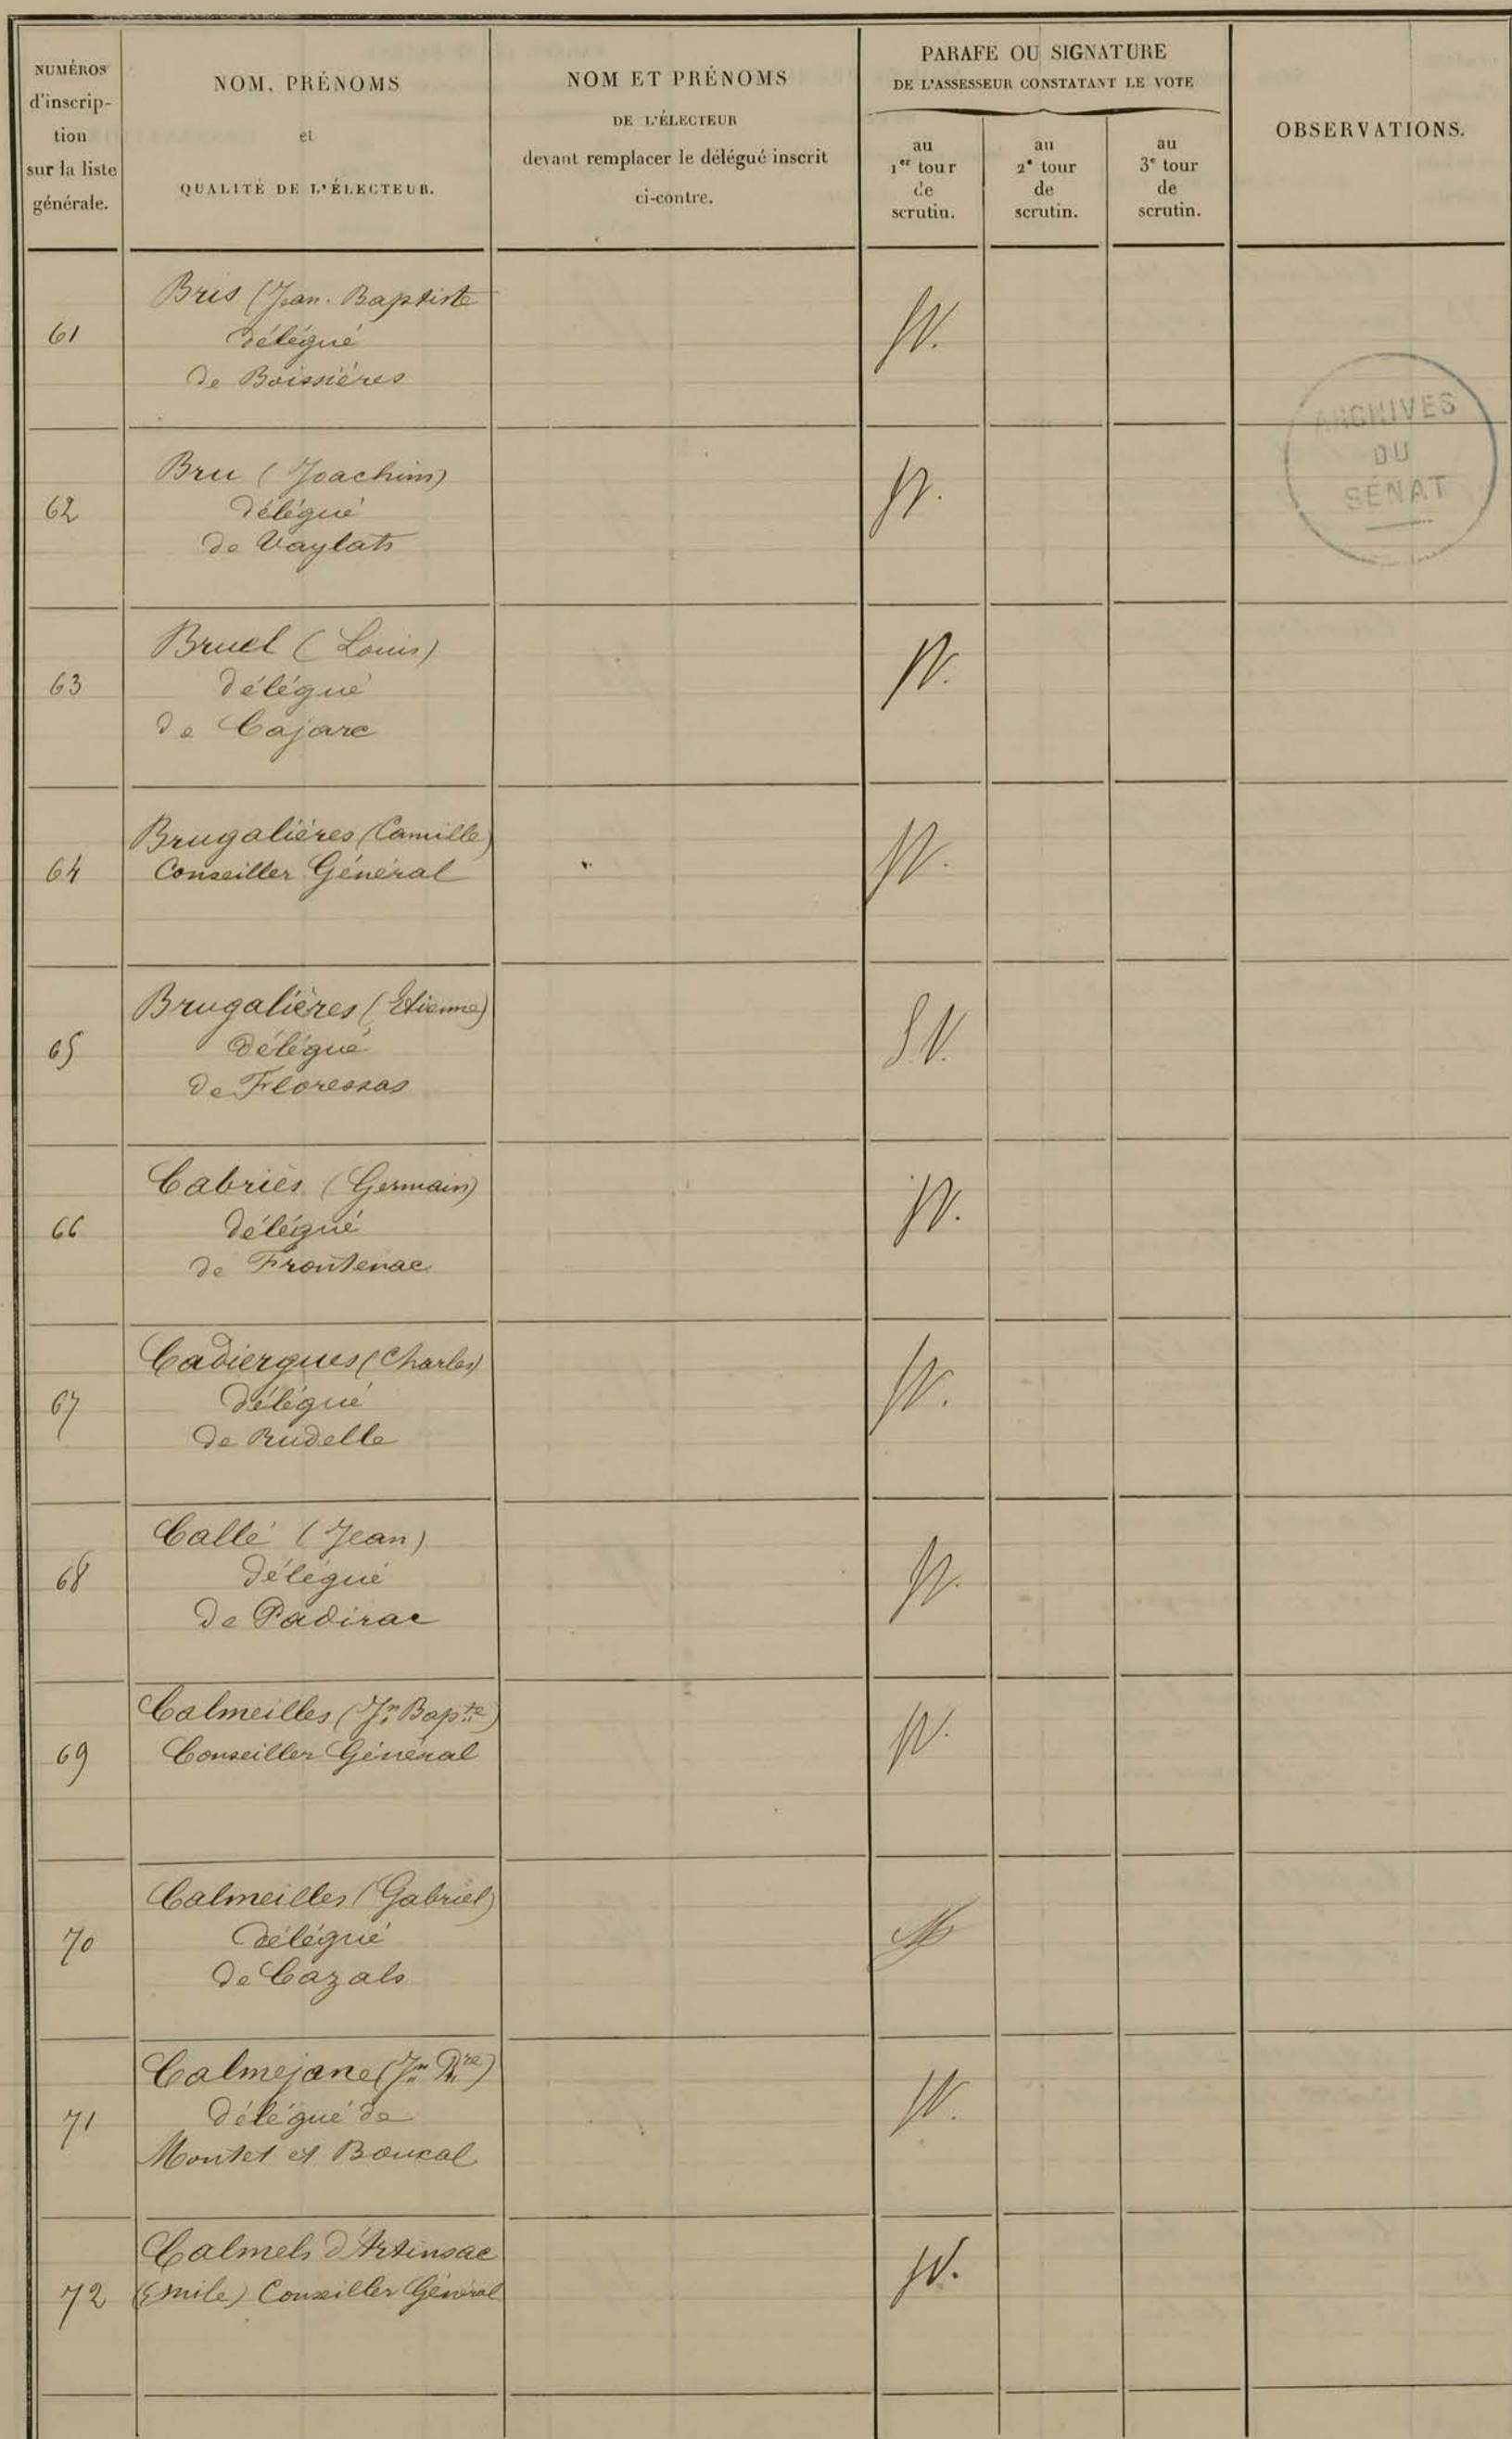 NUMÉROS
d'inscrip-
tion
sur la liste
générale.
NOM, PRÉNOMS
et
QUALITÉ DE L'ÉLECTEUR.
NOM ET PRÉNOMS
DE L'ÉLECTEUR
devant remplacer le délégué inscrit
ci-contre.
PARAFE OU SIGNATURE
DE L'ASSESSEUR CONSTATANT LE VOTE
au
1er tour
de
scrutin.
au
2e tour
de
scrutin.
au
3e tour
de
scrutin.
OBSERVATIONS.
ARCHIVES
DU
SÉNAT
61
Bris (Jean-Baptiste
délégué
de Boissières
62
Bru (Joachim)
délégué
de Vaylats
63
Bruel (Louis)
délégué
de Cajarc
64
Brugalières (Camille)
Conseiller Général
65
Brugalières (Etienne)
délégué
de Floressas
S.V.
66
Cabriès (Germain)
délégué
de Frontenac
67
Cadiergues (Charles)
délégué
de Rudelle
68
Callé (Jean)
délégué
de Padirac
69
Calmeilles (Jn Bapte)
Conseiller Général
70
Calmeilles (Gabriel)
délégué
de Cazals
71
Calmejane (Jn Prre)
délégué de
Montet et Bouxal
72
Calmels d'Artinsac
(Emile) Conseiller Général